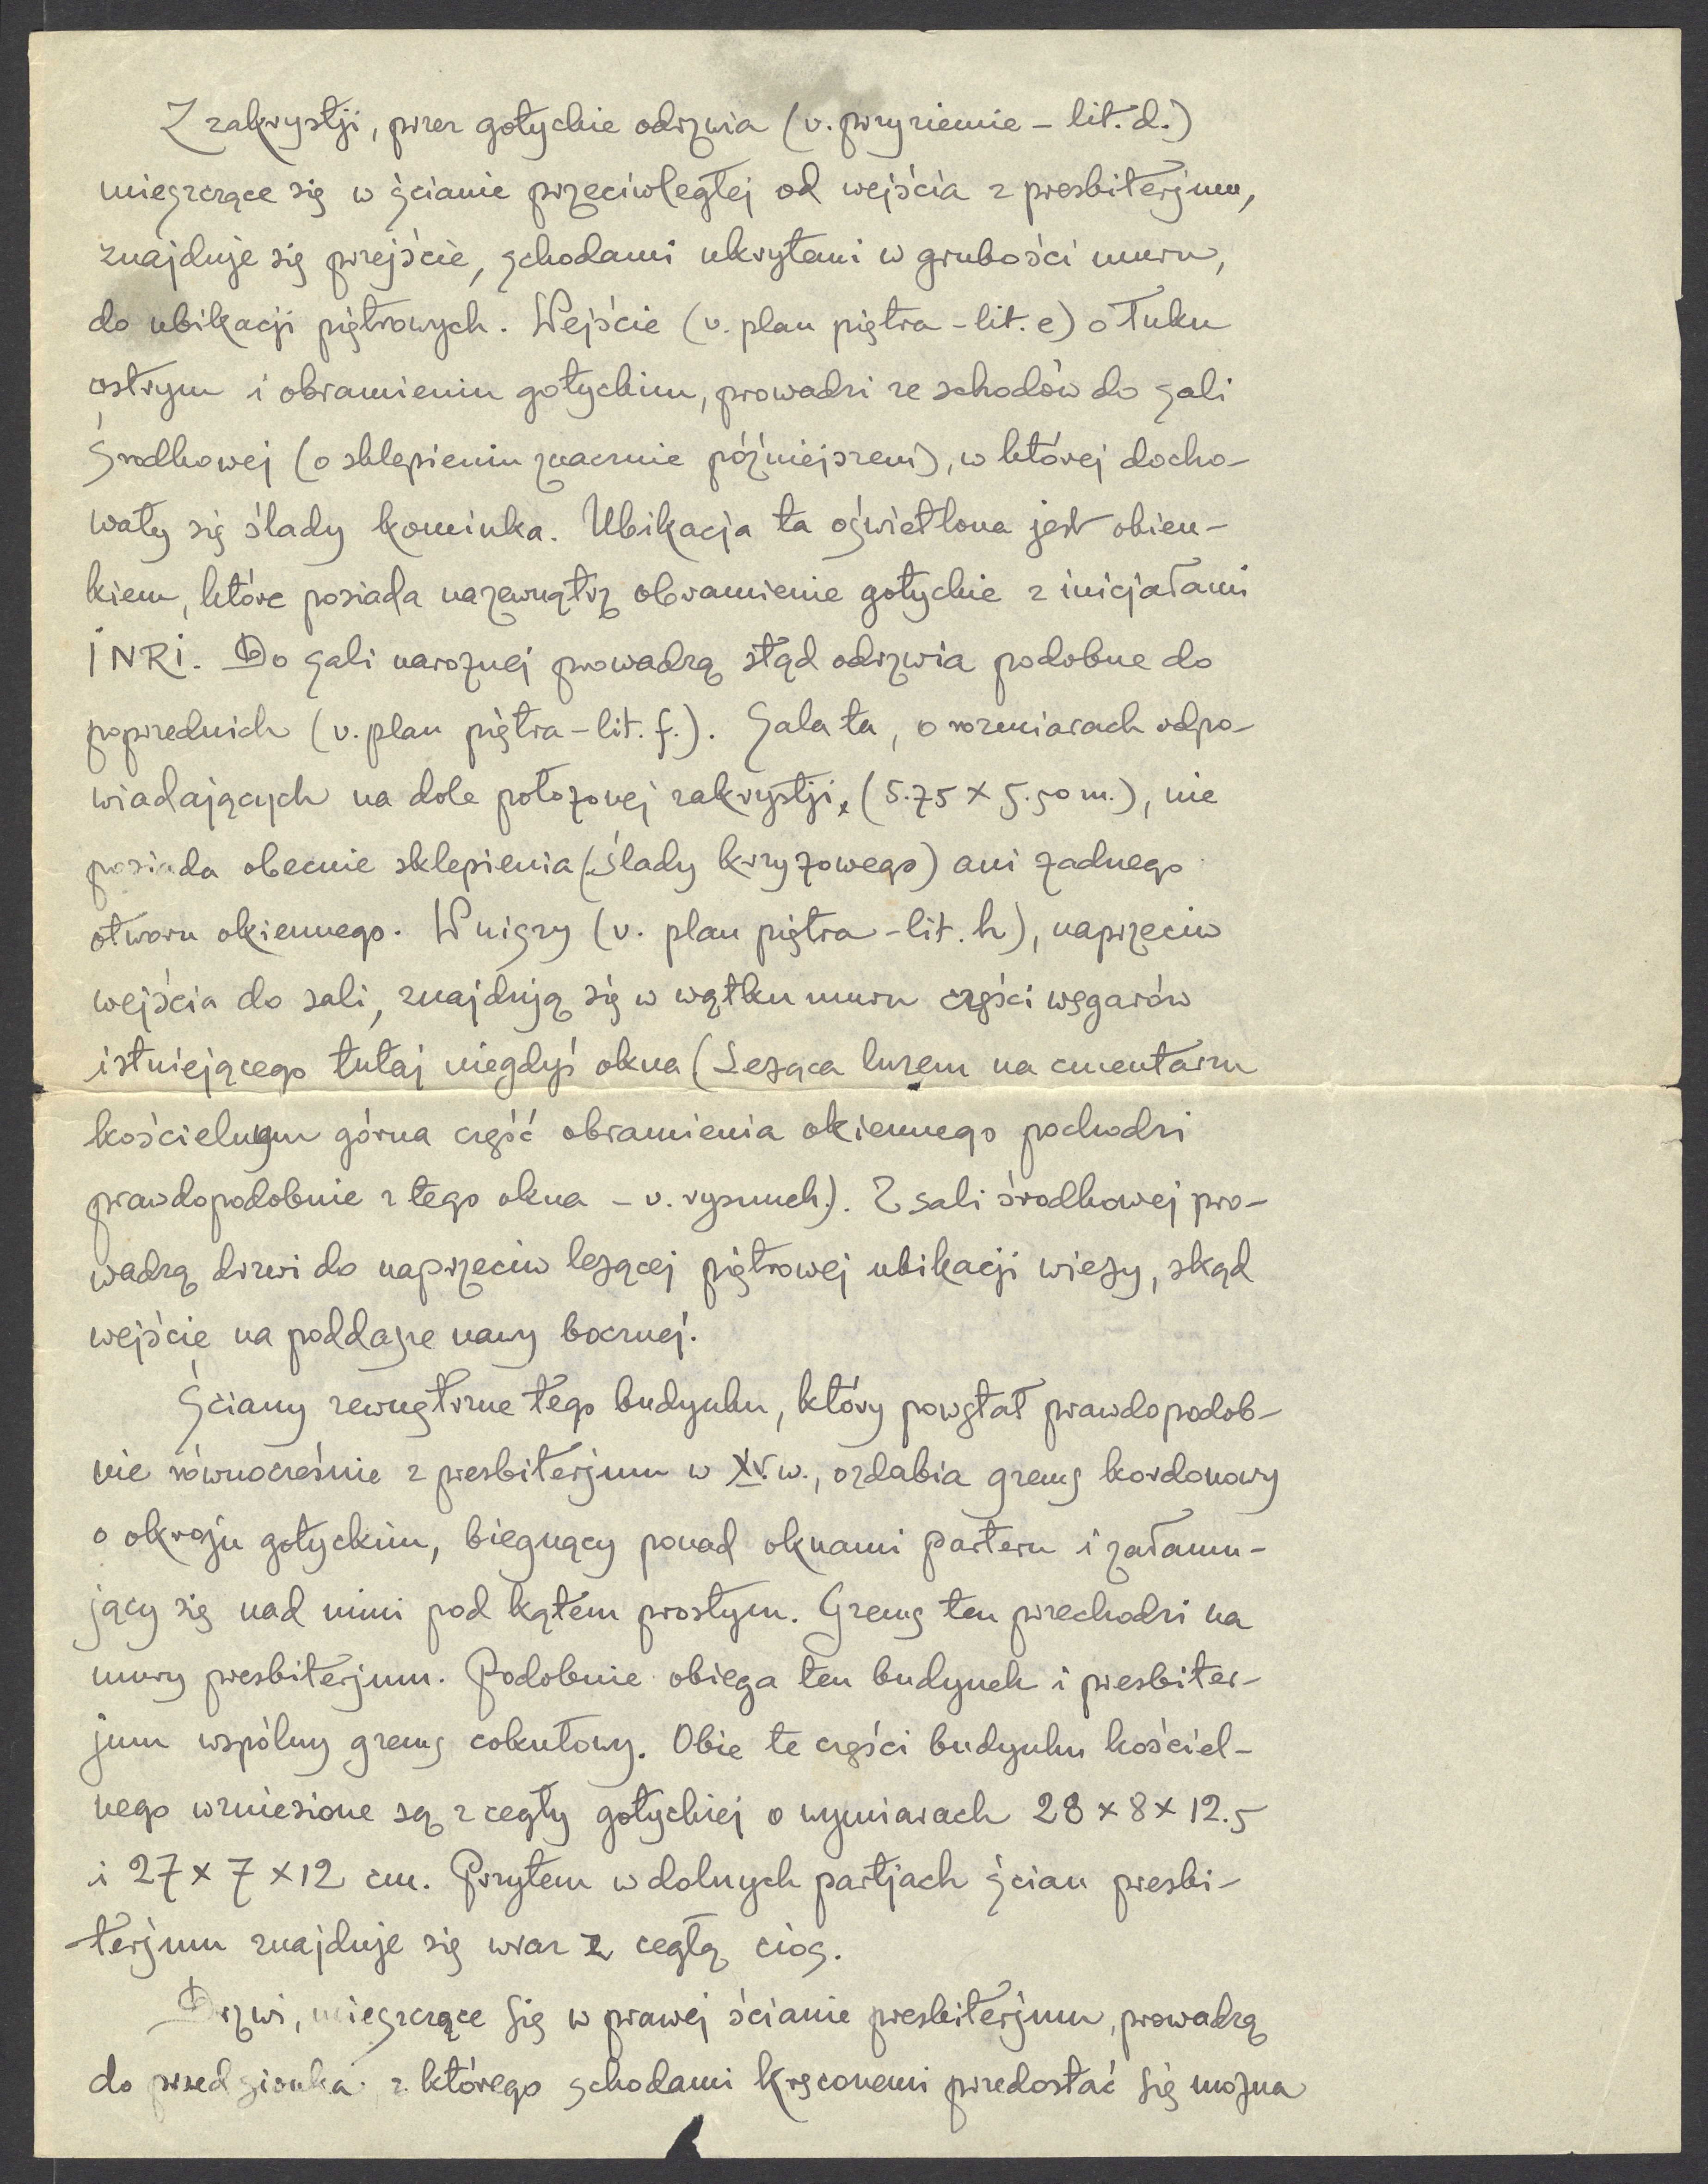 Z zakrystji, przez gotyckie odrzwia (v. przyziemie – lit. d.)
mieszczące się w ścianie przeciwległej od wejścia z presbiterjum,
znajduje się przejście, schodami ukrytemi w grubości muru,
do ubikacji piętrowych. Wejście (v. plan piętra – lit. e) o łuku
ostrym i obramieniu gotyckim, prowadzi ze schodów do sali
środkowej (o sklepieniu znacznie późniejszem), w której docho-
wały się ślady kominka. Ubikacja ta oświetlona jest okien-
kiem, które posiada nazewnątrz obramienie gotyckie z inicjałami
INRI. Do sali narożnej prowadzą stąd odrzwia podobne do
poprzednich (v. plan piętra – lit. f.). Sala ta, o rozmiarach odpo-
wiadających na dole położonej zakrystji, (5.75 x 5.50 m.), nie
posiada obecnie sklepienia (ślady krzyżowego) ani żadnego
otworu okiennego. W niszy (v. plan piętra – lit. h), naprzeciw
wejścia do sali, znajdują się w wątku muru części węgarów
istniejącego tutaj niegdyś okna (Leżąca luzem na cmentarzu
kościelnym górna część obramienia okiennego pochodzi
prawdopodobnie z tego okna – v. rysunek.). Z sali środkowej pro-
wadzą drzwi do naprzeciw leżącej piętrowej ubikacji wieży, skąd
wejście na poddasze nawy bocznej.
Ściany zewnętrzne tego budynku, który powstał prawdopodob-
nie równocześnie z presbiterjum w XV w., ozdabia gzems kordonowy
o okroju gotyckim, biegnący ponad oknami parteru i załamu-
jący się nad nimi pod kątem prostym. Gzems ten przechodzi na
mury presbiterjum. Podobnie obiega ten budynek i presbiter-
jum wspólny gzems cokułowy. Obie te części budynku kościel-
nego wzniesione są z cegły gotyckiej o wymiarach 28 x 8 x 12.5
i 27 x 7 x 12 cm. Przytem w dolnych partjach ścian presbi-
terjum znajduje się wraz z cegłą cios.
Drzwi, mieszczące się w prawej ścianie presbiterjum, prowadzą
do przedsionka z którego schodami kręconemi przedostać się można